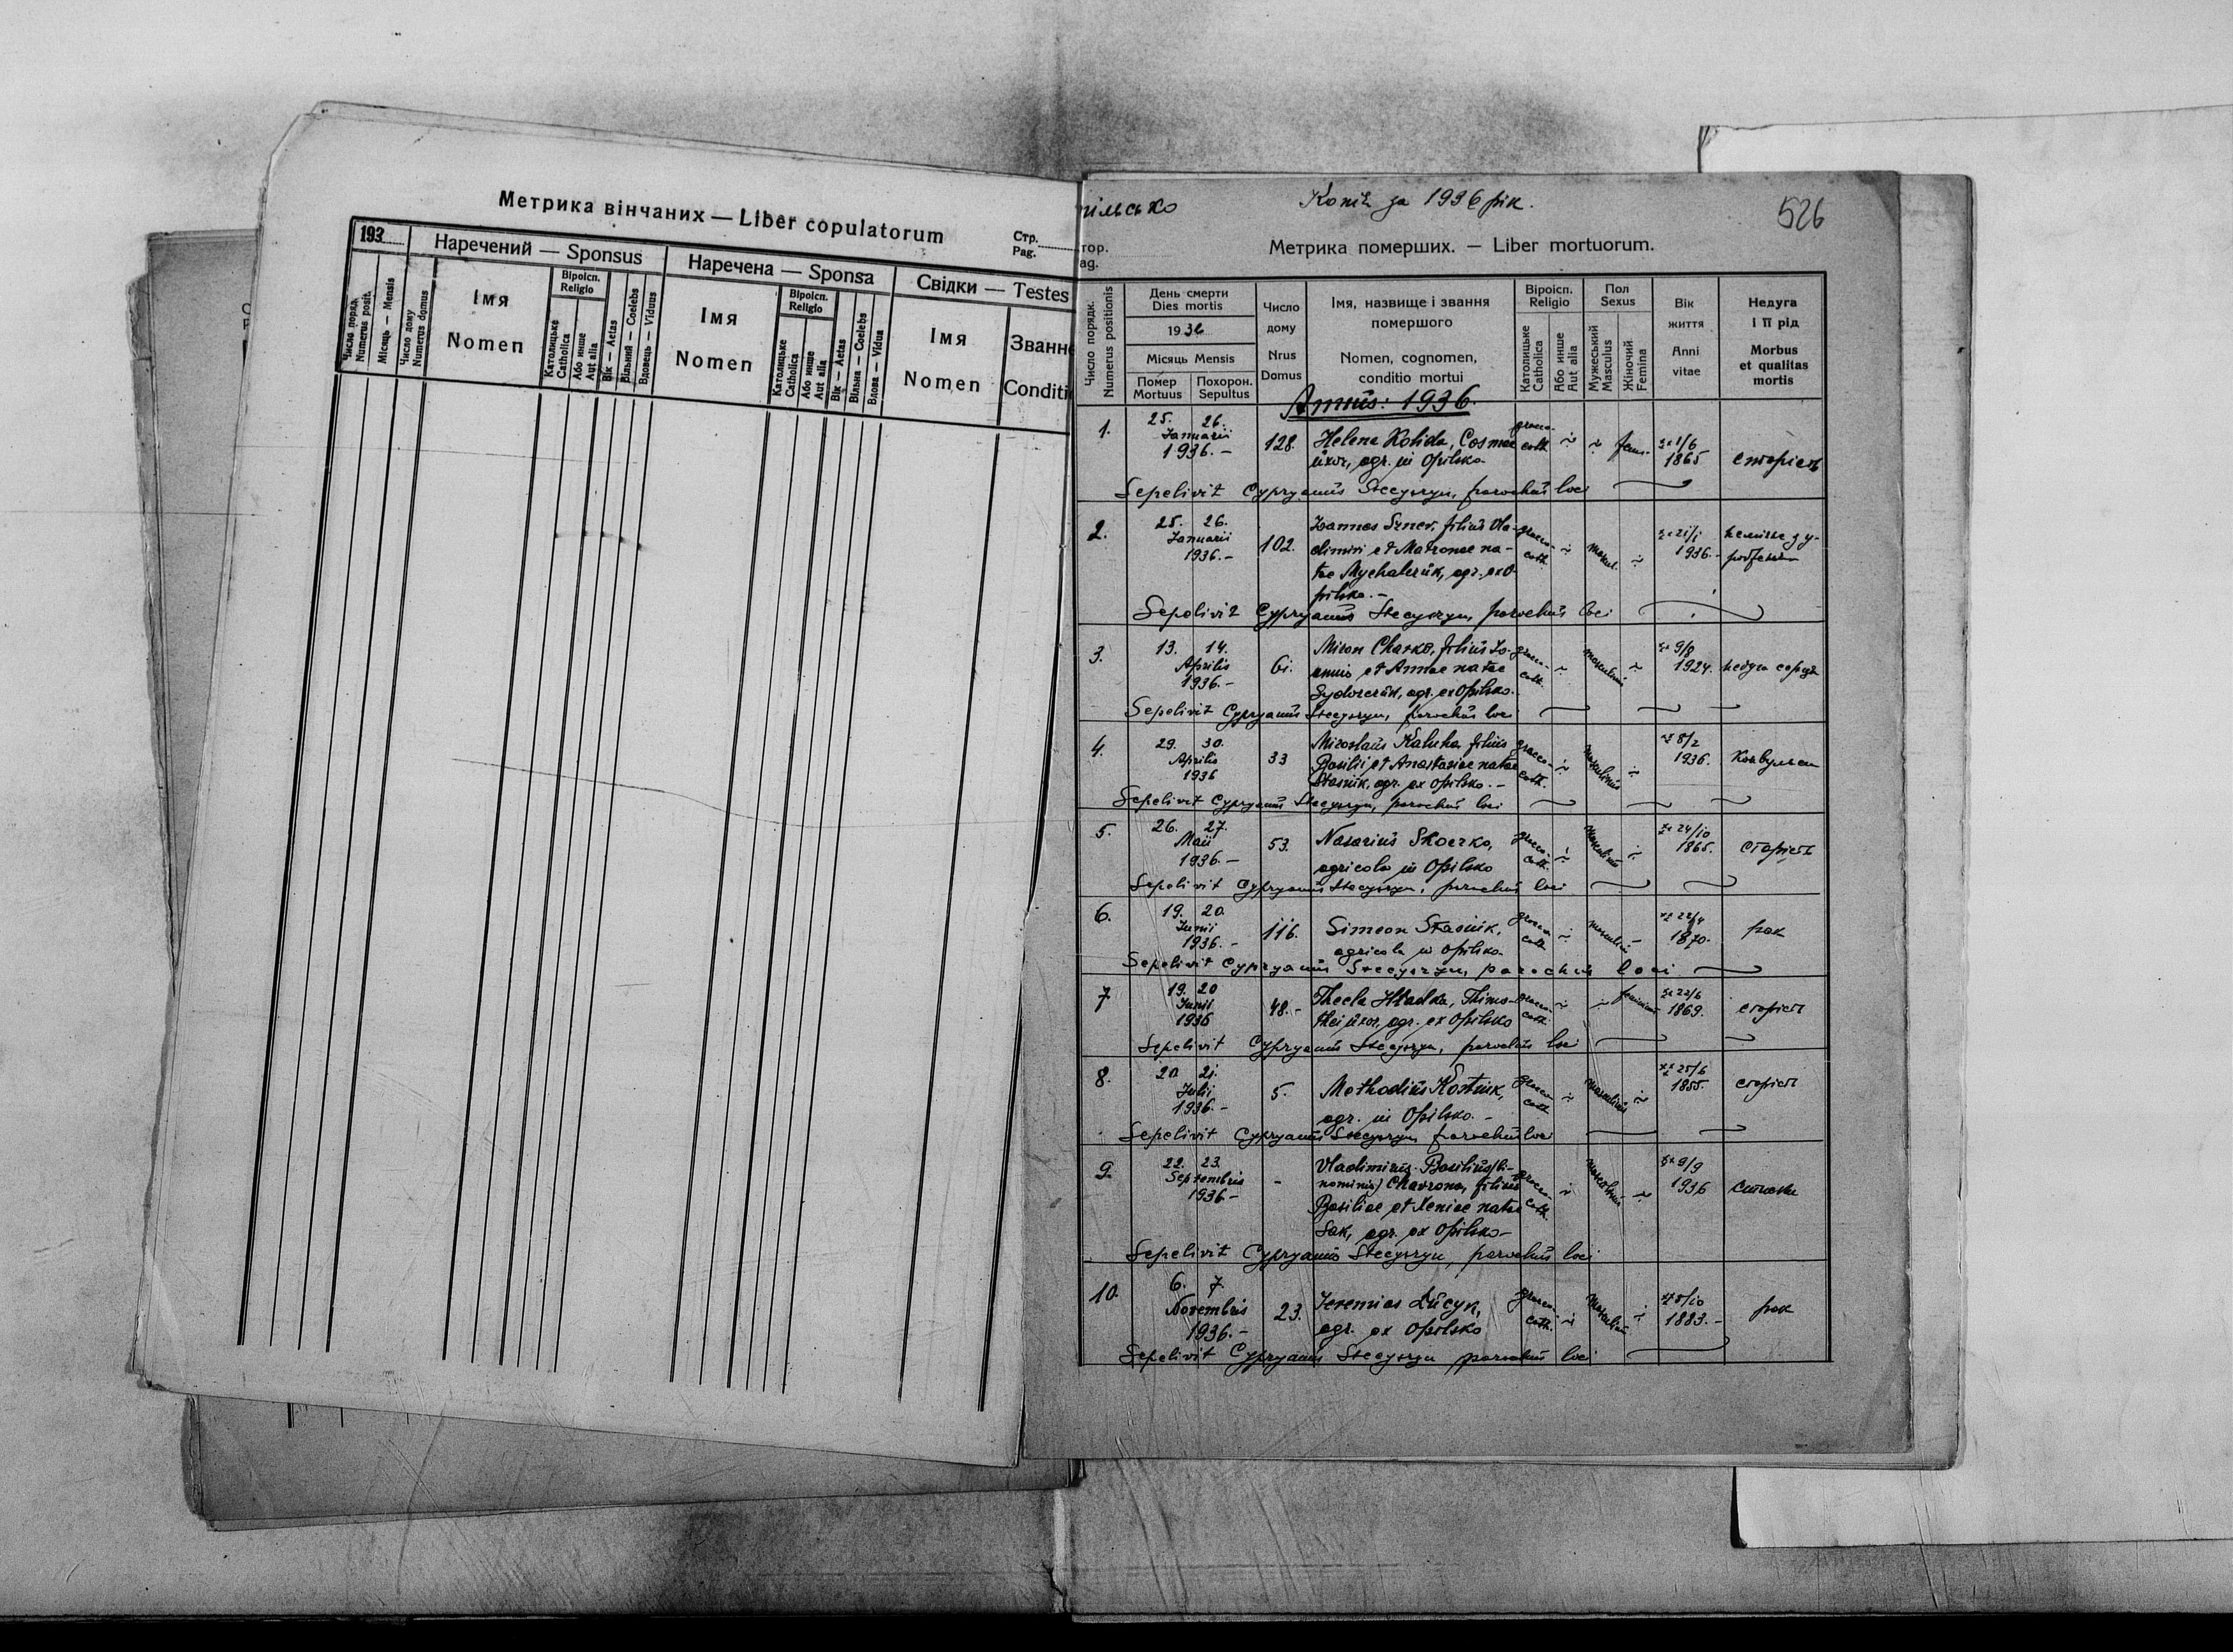 Метрика вінчаних — Liber copulatorum
Стр.
Pag.
193
Наречений — Sponsus
Наречена — Sponsa
Свідки — Testes
Число поряд.
Numerus posit.
Місяць — Mensis
Число дому
Numerus domus
Імя
Nomen
Віроісп.
Religio
Католицьке
Catholica
Або инше
Aut alia
Вік — Aetas
Вільний — Coelebs
Вдовець — Viduus
Імя
Nomen
Віроісп.
Religio
Католицьке
Catholica
Або инше
Aut alia
Вік — Aetas
Вільна — Coelebs
Вдова — Vidua
Імя
Nomen
Званнє
Conditi
пільсько
Копія за 1936 рік.
526
тор.
ag.
Метрика померших. — Liber mortuorum.
Число порядк.
Numerus positionis
День смерти
Dies mortis
1936
Місяць Mensis
Помер
Mortuus
Похорон.
Sepultus
Число
дому
Nrus
Domus
Імя, назвище і звання
помершого
Nomen, cognomen,
conditio mortui
Віроісп.
Religio
Католицьке
Catholica
Або инше
Aut alia
Пол
Sexus
Мужеський
Masculus
Жіночий
Femina
Вік
життя
Anni
vitae
Недуга
і її рід
Morbus
et qualitas
mortis
Annus: 1936.
1.
25. 26.
Januarii
1936. –
128.
Helena Kolida, Cosmae
uxor, agr. in Opilsko
graeco-
cath.
fem.
1/6
1865
старість
Sepelivit Cypryanus Stecyszyn, parochus loci
2.
25. 26.
Januarii
1936. –
102.
Joannes Szner, filius Vla-
dimiri et Matronae na-
tae Mychalczuk, agr. ex O-
pilsko. –
graeco-
cath.
mascul.
21/1
1936. –
Sepelivit Cypryanus Stecyszyn, parochus loci
3.
13. 14.
Aprilis
1936. –
61.
Miron Charko, filius Jo-
annis et Annae natae
Sydorczuk, agr. ex Opilsko.
graeco-
cath.
masculinus
9/8
1924.
недуга серця
Sepelivit Cypryanus Stecyszyn, parochus loci
4.
29. 30.
Aprilis
1936
33
Miroslaus Kaluha filius
Basilii et Anastasiae natae
Stasiuk, agr. ex Opilsko. –
graeco-
cath.
masculinus
8/2
1936.
Конвульсії
Sepelivit Cypryanus Stecyszyn, parochus loci
5.
26. 27.
Maii
1936. –
53.
Nasarius Skoczko,
agricola in Opilsko
graeco-
cath.
masculinus
24/10
1865.
старість
Sepelivit Cypryanus Stecyszyn, parochus loci
6.
19. 20.
Junii
1936. –
116.
Simeon Stasiuk,
agricola in Opilsko
graeco-
cath.
masculinus
22/4
1870.
рак
Sepelivit Cypryanus Stecyszyn, parochus loci
7.
19. 20
Junii
1936
48. –
Thecla Hładka, Thimo-
thei uxor, agr. ex Opilsko
graeco-
cath.
feminina
22/6
1869.
старість
Sepelivit Cypryanus Stecyszyn, parochus loci
8.
20. 21.
Julii
1936. –
5.
Methodius Kostiuk,
agr. in Opilsko. –
graeco-
cath.
masculinus
25/6
1855.
старість
Sepelivit Cypryanus Stecyszyn parochus loci
9.
22. 23.
Septembris
1936 –
–
Vladimirus-Basilius (bi-
nominis) Chavrona, filius
Basiliae et Xeniae natae
Sak, agr. ex Opilsko –
graeco-
cath.
masculinus
9/9
1936
Sepelivit Cypryanus Stecyszyn, parochus loci
10.
6. 7.
Novembris
1936. –
23.
Jeremias Lucyk,
agr. ex Opilsko
graeco-
cath.
masculinus
5/10
1883. –
рак
Sepelivit Cypryanus Stecyszyn parochus loci